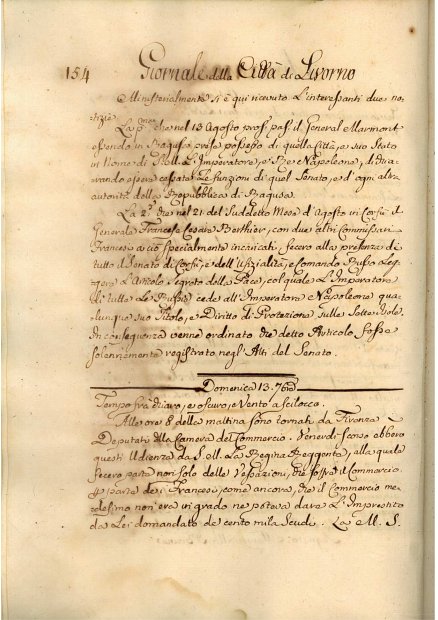 154 Giornale della Città di Livorno
Ministerialmente si è qui ricevuto l'interessanti due no-
tizie.
La p.ma che nel 13 Agosto pros.o pas.o il General Marmont
essendo in Ragusa prese possesso di quella Città, e suo Stato
in Nome di S. M. L'Imperatore, e Re Napoleone, dichia-
rando essere cessate le funzioni di quel Senato, e d'ogni altra
autorità della Repubblica di Ragusa.
La 2.a che nel 21 del Suddetto Mese d'Agosto in Corfù il
Generale Francese Cesare Berthier, con due altri Commissari
Francesi a ciò specialmente incaricati, fecero alla presenza di
tutto il Senato di Corfù, e dell'Ufizialità, e Comando Russo Leg-
gere L'Articolo Segreto della Pace, col quale L'Imperatore
di tutte Le Russie cede all'Imperatore Napoleone qua-
lunque suo Titolo, e Diritto di Protezione sulle Sette Isole.
In conseguenza venne ordinato che detto Articolo fosse
solennemente registrato negl'Atti del Senato.
Domenica 13. 7bre
Tempo frà chiaro, e oscuro, e Vento a Scilocco.
Alle ore 8 della mattina sono tornati da Firenze i
Deputati della Camera del Commercio. Venerdì scorso ebbero
questi Udienza da S. M. La Regina Reggente, alla quale
fecero parte non solo delle Vessazioni, che soffrà il Commercio
p parte dei Francesi, come ancora, che il Commercio me-
desimo non era in grado ne poteva dare L'Imprestito
da Lei domandato de cento mila Scudi. La M. S.